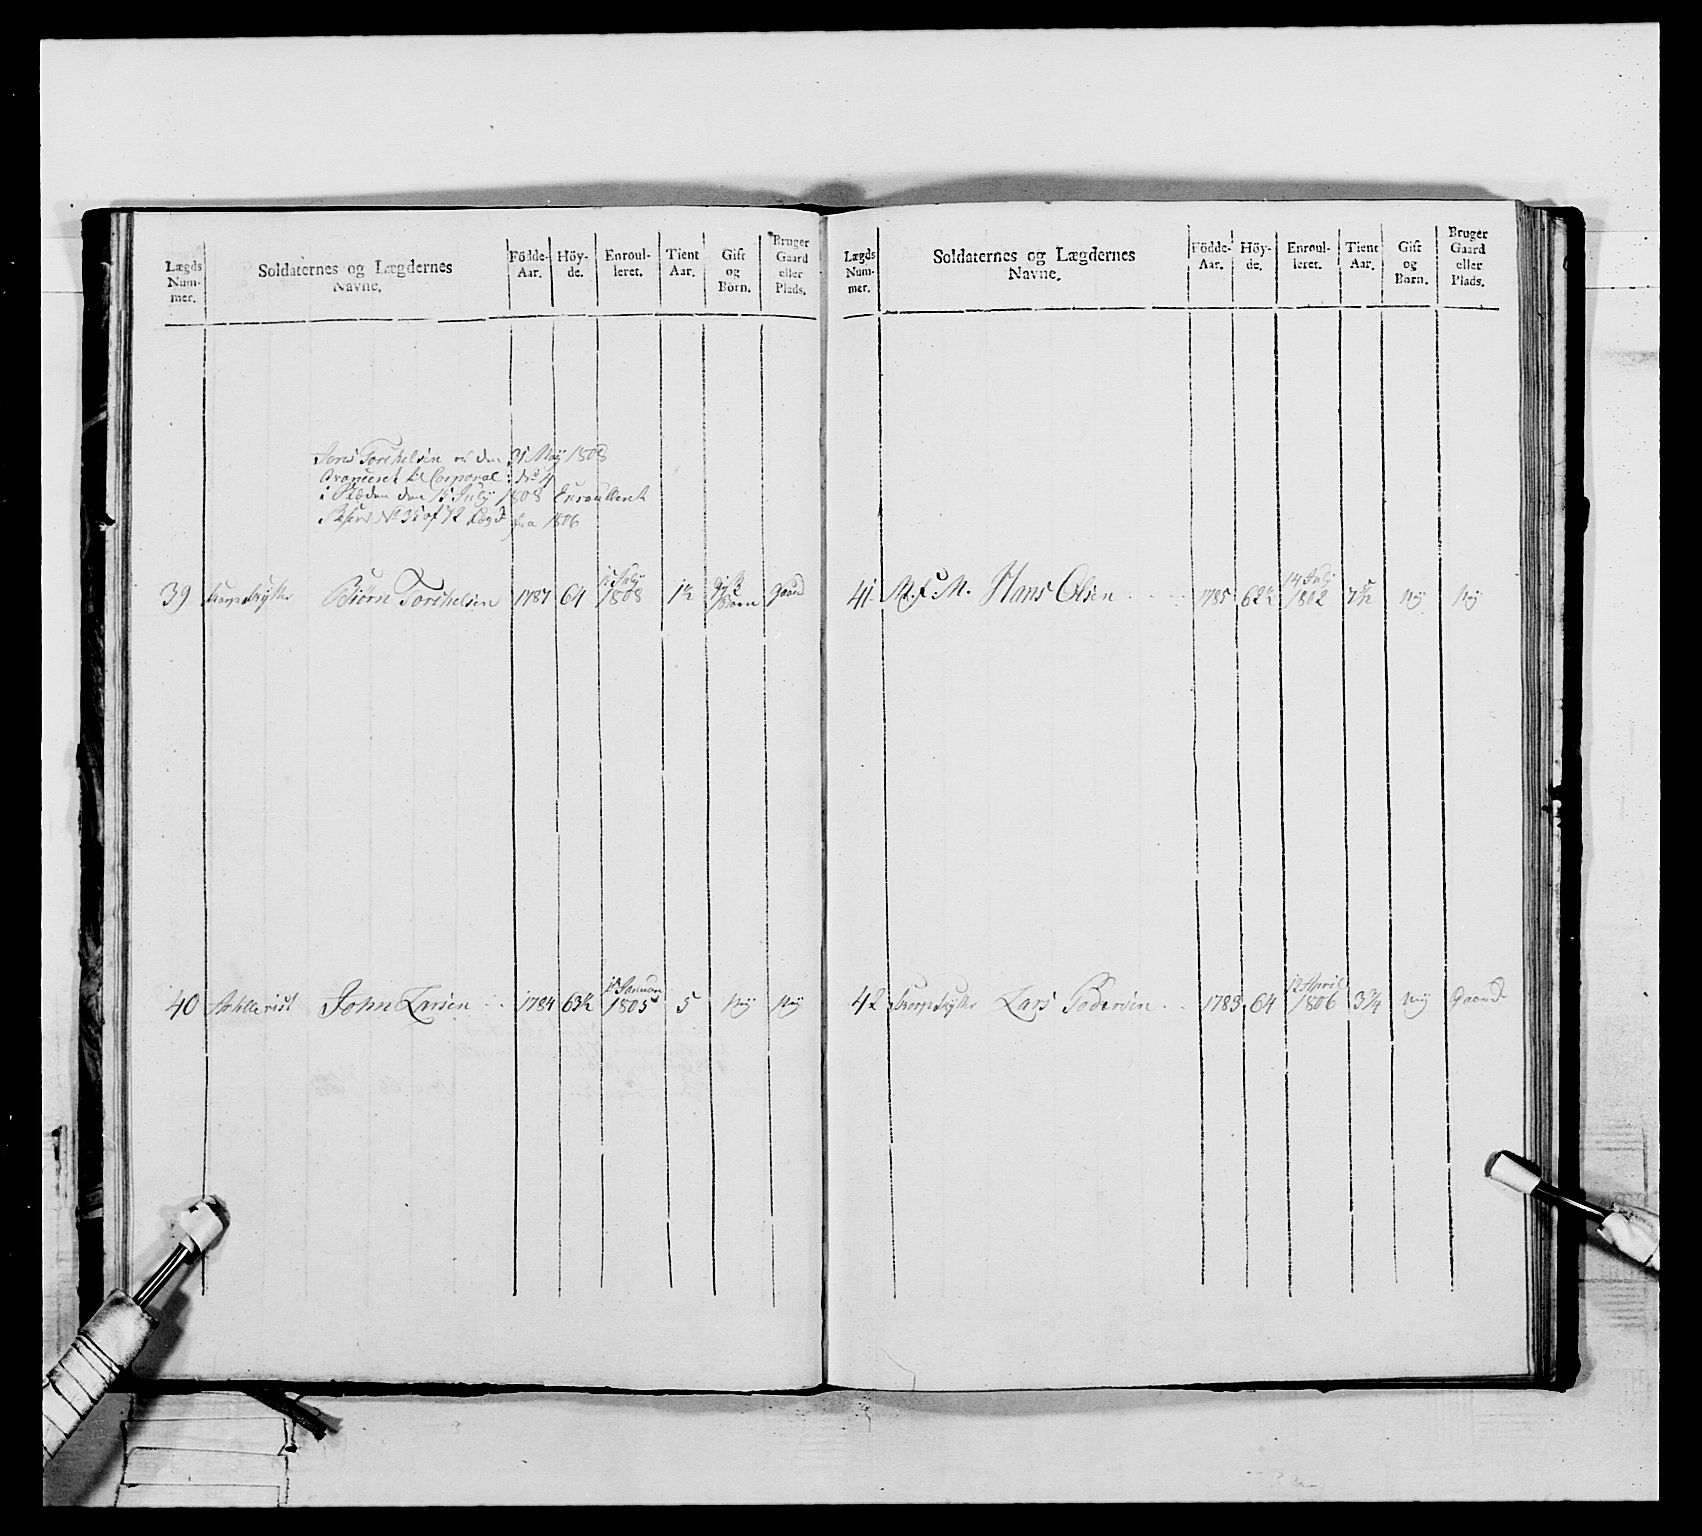 Lægds Num- mer.
Soldaternes og Lægdernes Navne.
Födde- Aar.
Höy- de.
Enroul- leret.
Tient Aar.
Gift og Börn.
Bruger Gaard eller Plads.
Jens Torchelsen er den 31 May 1808
Avanceret til Corporal: No 4
i Stæden den 15 July 1808 Enroulleret
Reserv No 35 af 72 Lægd fra 1806
39 Skarpskytter Biörn Torchelsen 1787 64 15 July 1808 1½ gift 1 Barn Gaard
40 Artillerist John Larsen 1784 63½ Januari 1805 5 Nej Nej
Lægds Num- mer.
Soldaternes og Lægdernes Navne.
Födde- Aar.
Höy- de.
Enroul- leret.
Tient Aar.
Gift og Børn.
Bruger Gaard eller Plads.
41 Hans Olsen 1785 62½ 14 July 1802 7½ Nej Nej
42 Skarpskytter Lars Pedersen 1783 64 12 April 1806 3¾ Nej Gaard